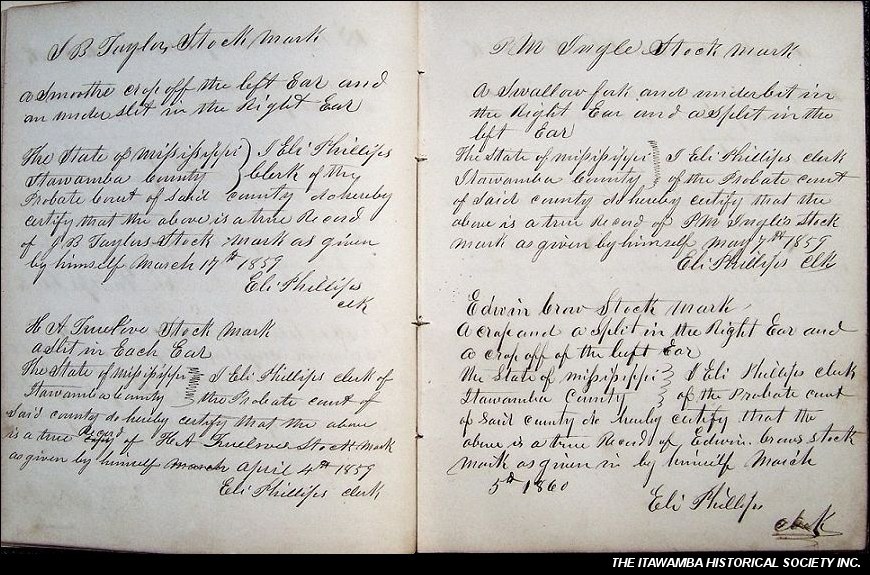 J B Taylors Stock mark
a Smoothe crop off the left Ear and
an under slit in the Right Ear
The State of Mississippi ) I Eli Phillips
Itawamba County ) Clerk of the
Probate Court of said county do hereby
certify that the above is a true Record
of J B Taylors Stock mark as given
by himself March 17th 1859
Eli Phillips
clk
H A Truelove Stock mark
a slit in Each Ear
The State of Mississippi I Eli Phillips clerk of
Itawamba County the Probate court of
said county do hereby certify that the above
is a true Record of H A Trueloves Stock mark
as given by himself march april 4th 1859
Eli Phillips clerk
P M Ingle Stock mark
A Swallow fork and underbit in
the Right Ear and a Split in the
left Ear
The State of Mississippi I Eli Phillips clerk
Itawamba County of the Probate court
of said county do hereby certify that the
above is a true Record of P M Ingles Stock
mark as given by himself may 7th 1859
Eli Phillips clk
Edwin Crow Stock mark
A crop and a Split in the Right Ear and
a crop off of the left Ear
The State of Mississippi I Eli Phillips clerk
Itawamba County of the Probate court
of said county do hereby certify that the
above is a true Record of Edwin Crows stock
mark as given in by himself March
5th 1860
Eli Phillips
clerk
THE ITAWAMBA HISTORICAL SOCIETY INC.